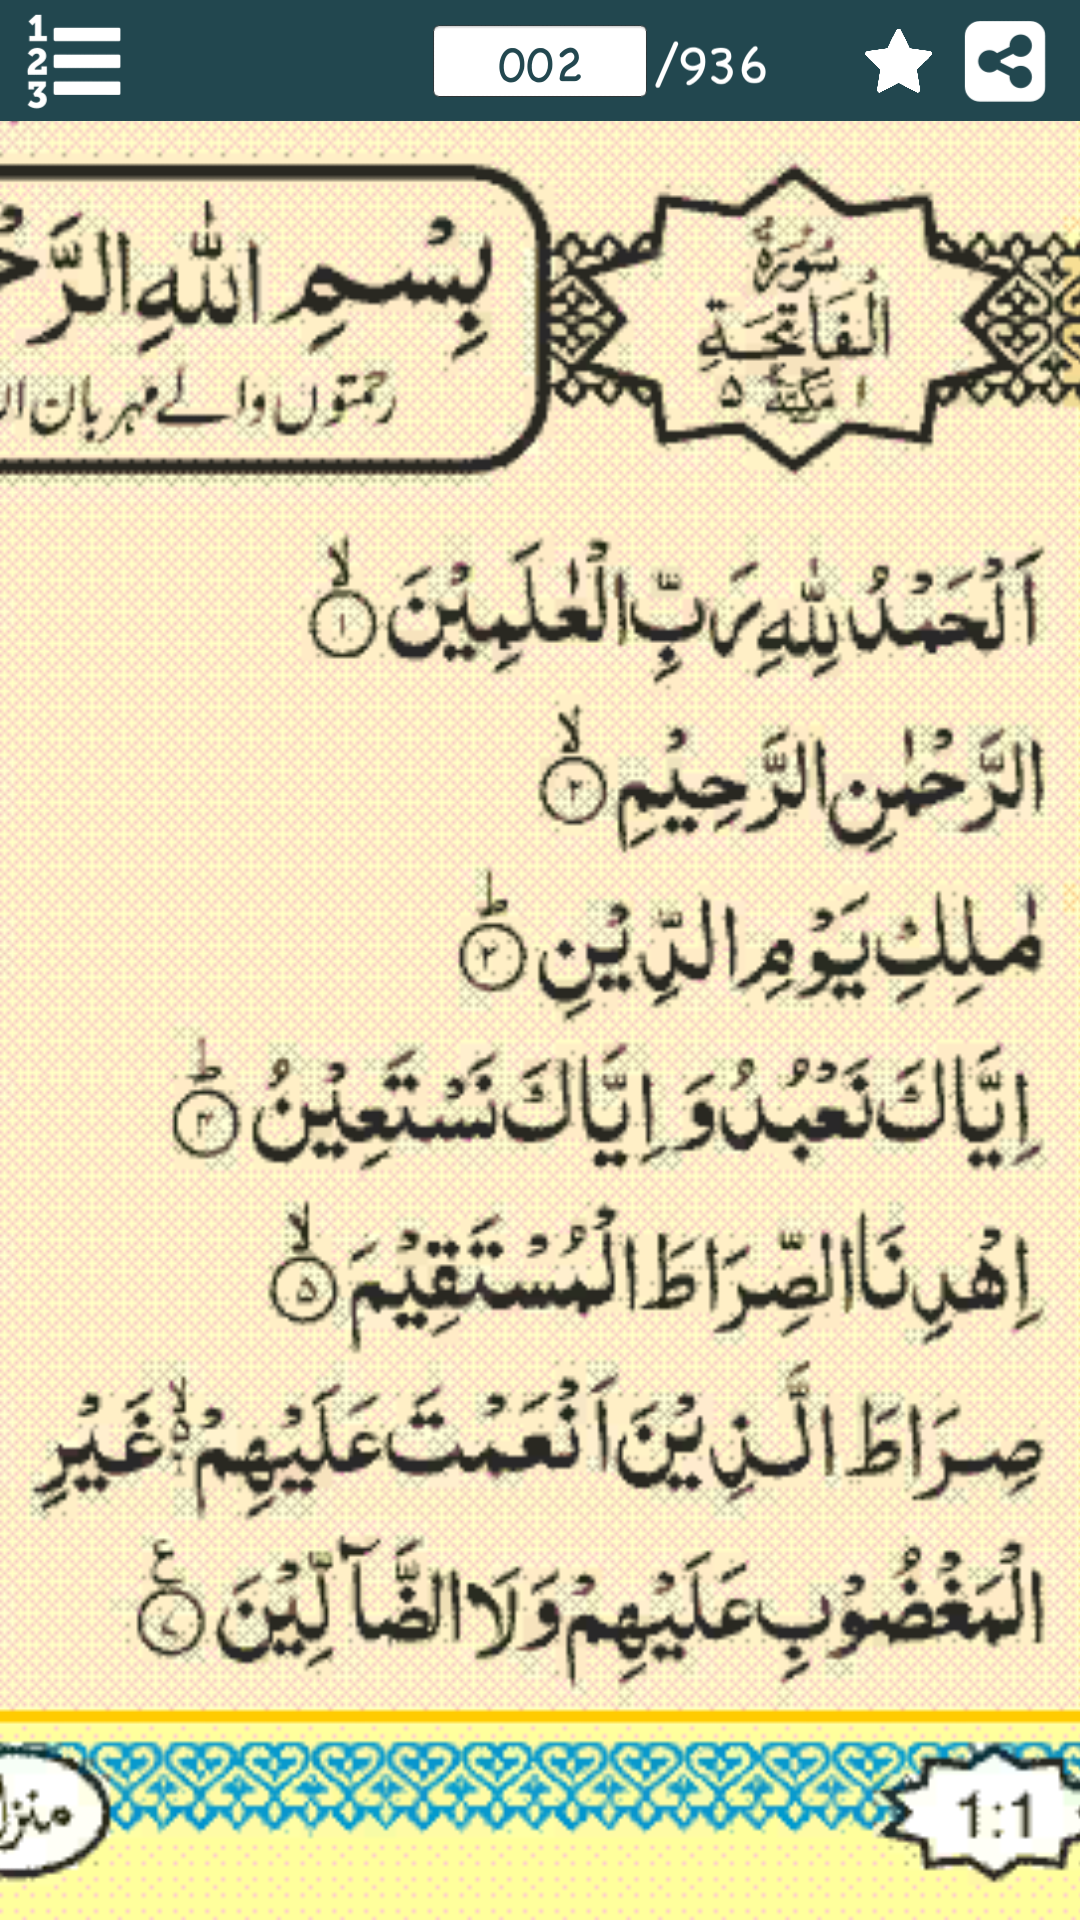 1
2
3
002 /936
سُوْرَةُ
الْفَاتِحَةِ
١ مَكِّيَّةٌ ٥
بِسْمِ اللّٰهِ
رحمتوں والے مہربان
اَلْحَمْدُ لِلّٰهِ رَبِّ الْعٰلَمِيْنَ ۙ ١
الرَّحْمٰنِ الرَّحِيْمِ ۙ ٢
مٰلِكِ يَوْمِ الدِّيْنِ ؕ ٣
اِيَّاكَ نَعْبُدُ وَ اِيَّاكَ نَسْتَعِيْنُ ؕ ٤
اِهْدِنَا الصِّرَاطَ الْمُسْتَقِيْمَ ۙ ٥
صِرَاطَ الَّذِيْنَ اَنْعَمْتَ عَلَيْهِمْ ۙ۬ غَيْرِ
الْمَغْضُوْبِ عَلَيْهِمْ وَلَا الضَّآلِّيْنَ ع ٧
1:1